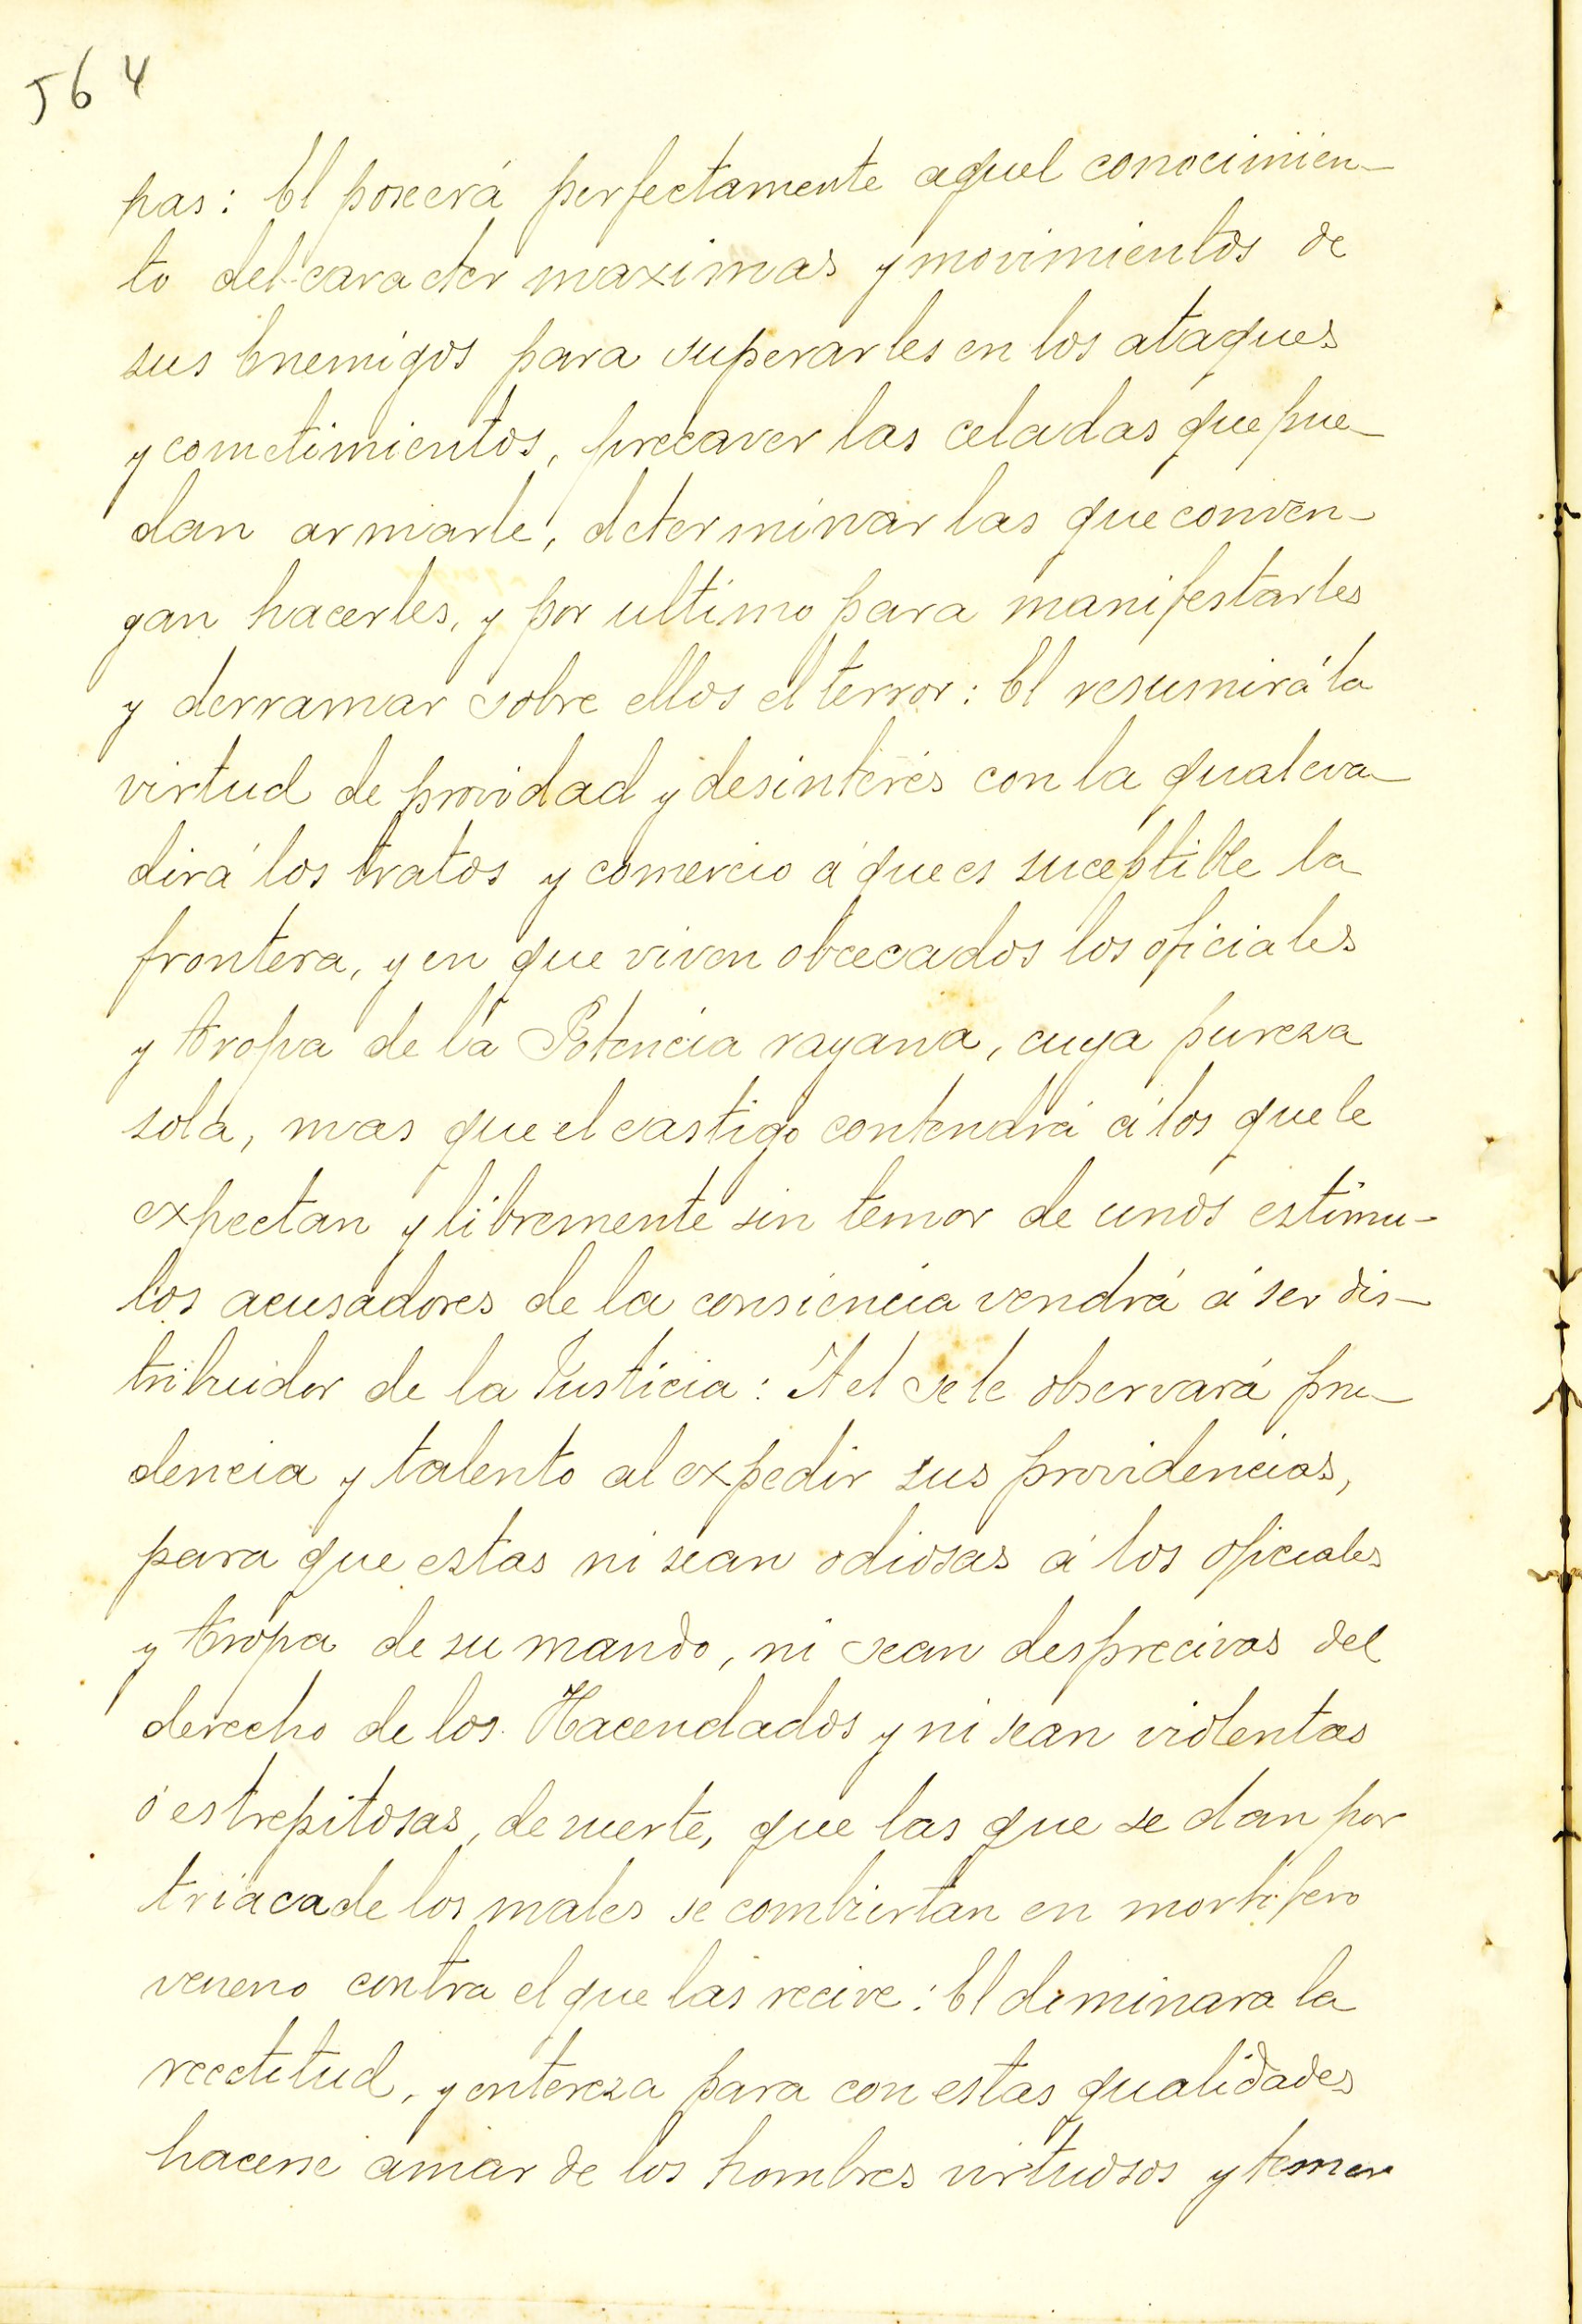 564
pas: El poseerá perfectamente aquel conocimien-
to del caracter maximas y movimientos de
sus Enemigos para superarles en los ataques
y cometimientos, precaver las celadas que pue-
dan armarle, determinar las que conven-
gan hacerles, y por ultimo para manifestarles
y derramar sobre ellos el terror: El resumirá la
virtud de providad y desinterés con la qual eva-
dirá los tratos y comercio á que es suceptible la
frontera, y en que viven obcecados los oficiales
y tropa de la Potencia rayana, cuya pureza
sola, mas que el castigo contendrá á los que le
expectan y libremente sin temor de unos estimu-
los acusadores de la consiencia vendrá á ser dis-
tribuidor de la Justicia: A el se le observará pru-
dencia y talento al expedir sus providencias,
para que estas ni sean odiosas á los oficiales
y tropa de su mando, ni sean desprecivas del
derecho de los Hacendados y ni sean violentas
ó estrepitosas, de suerte, que las que se dan por
triaca de los males se combiertan en mortifero
veneno contra el que las recive: El diminara la
rectitud, y entereza para con estas qualidades
hacerse amar de los hombres virtuosos y temer